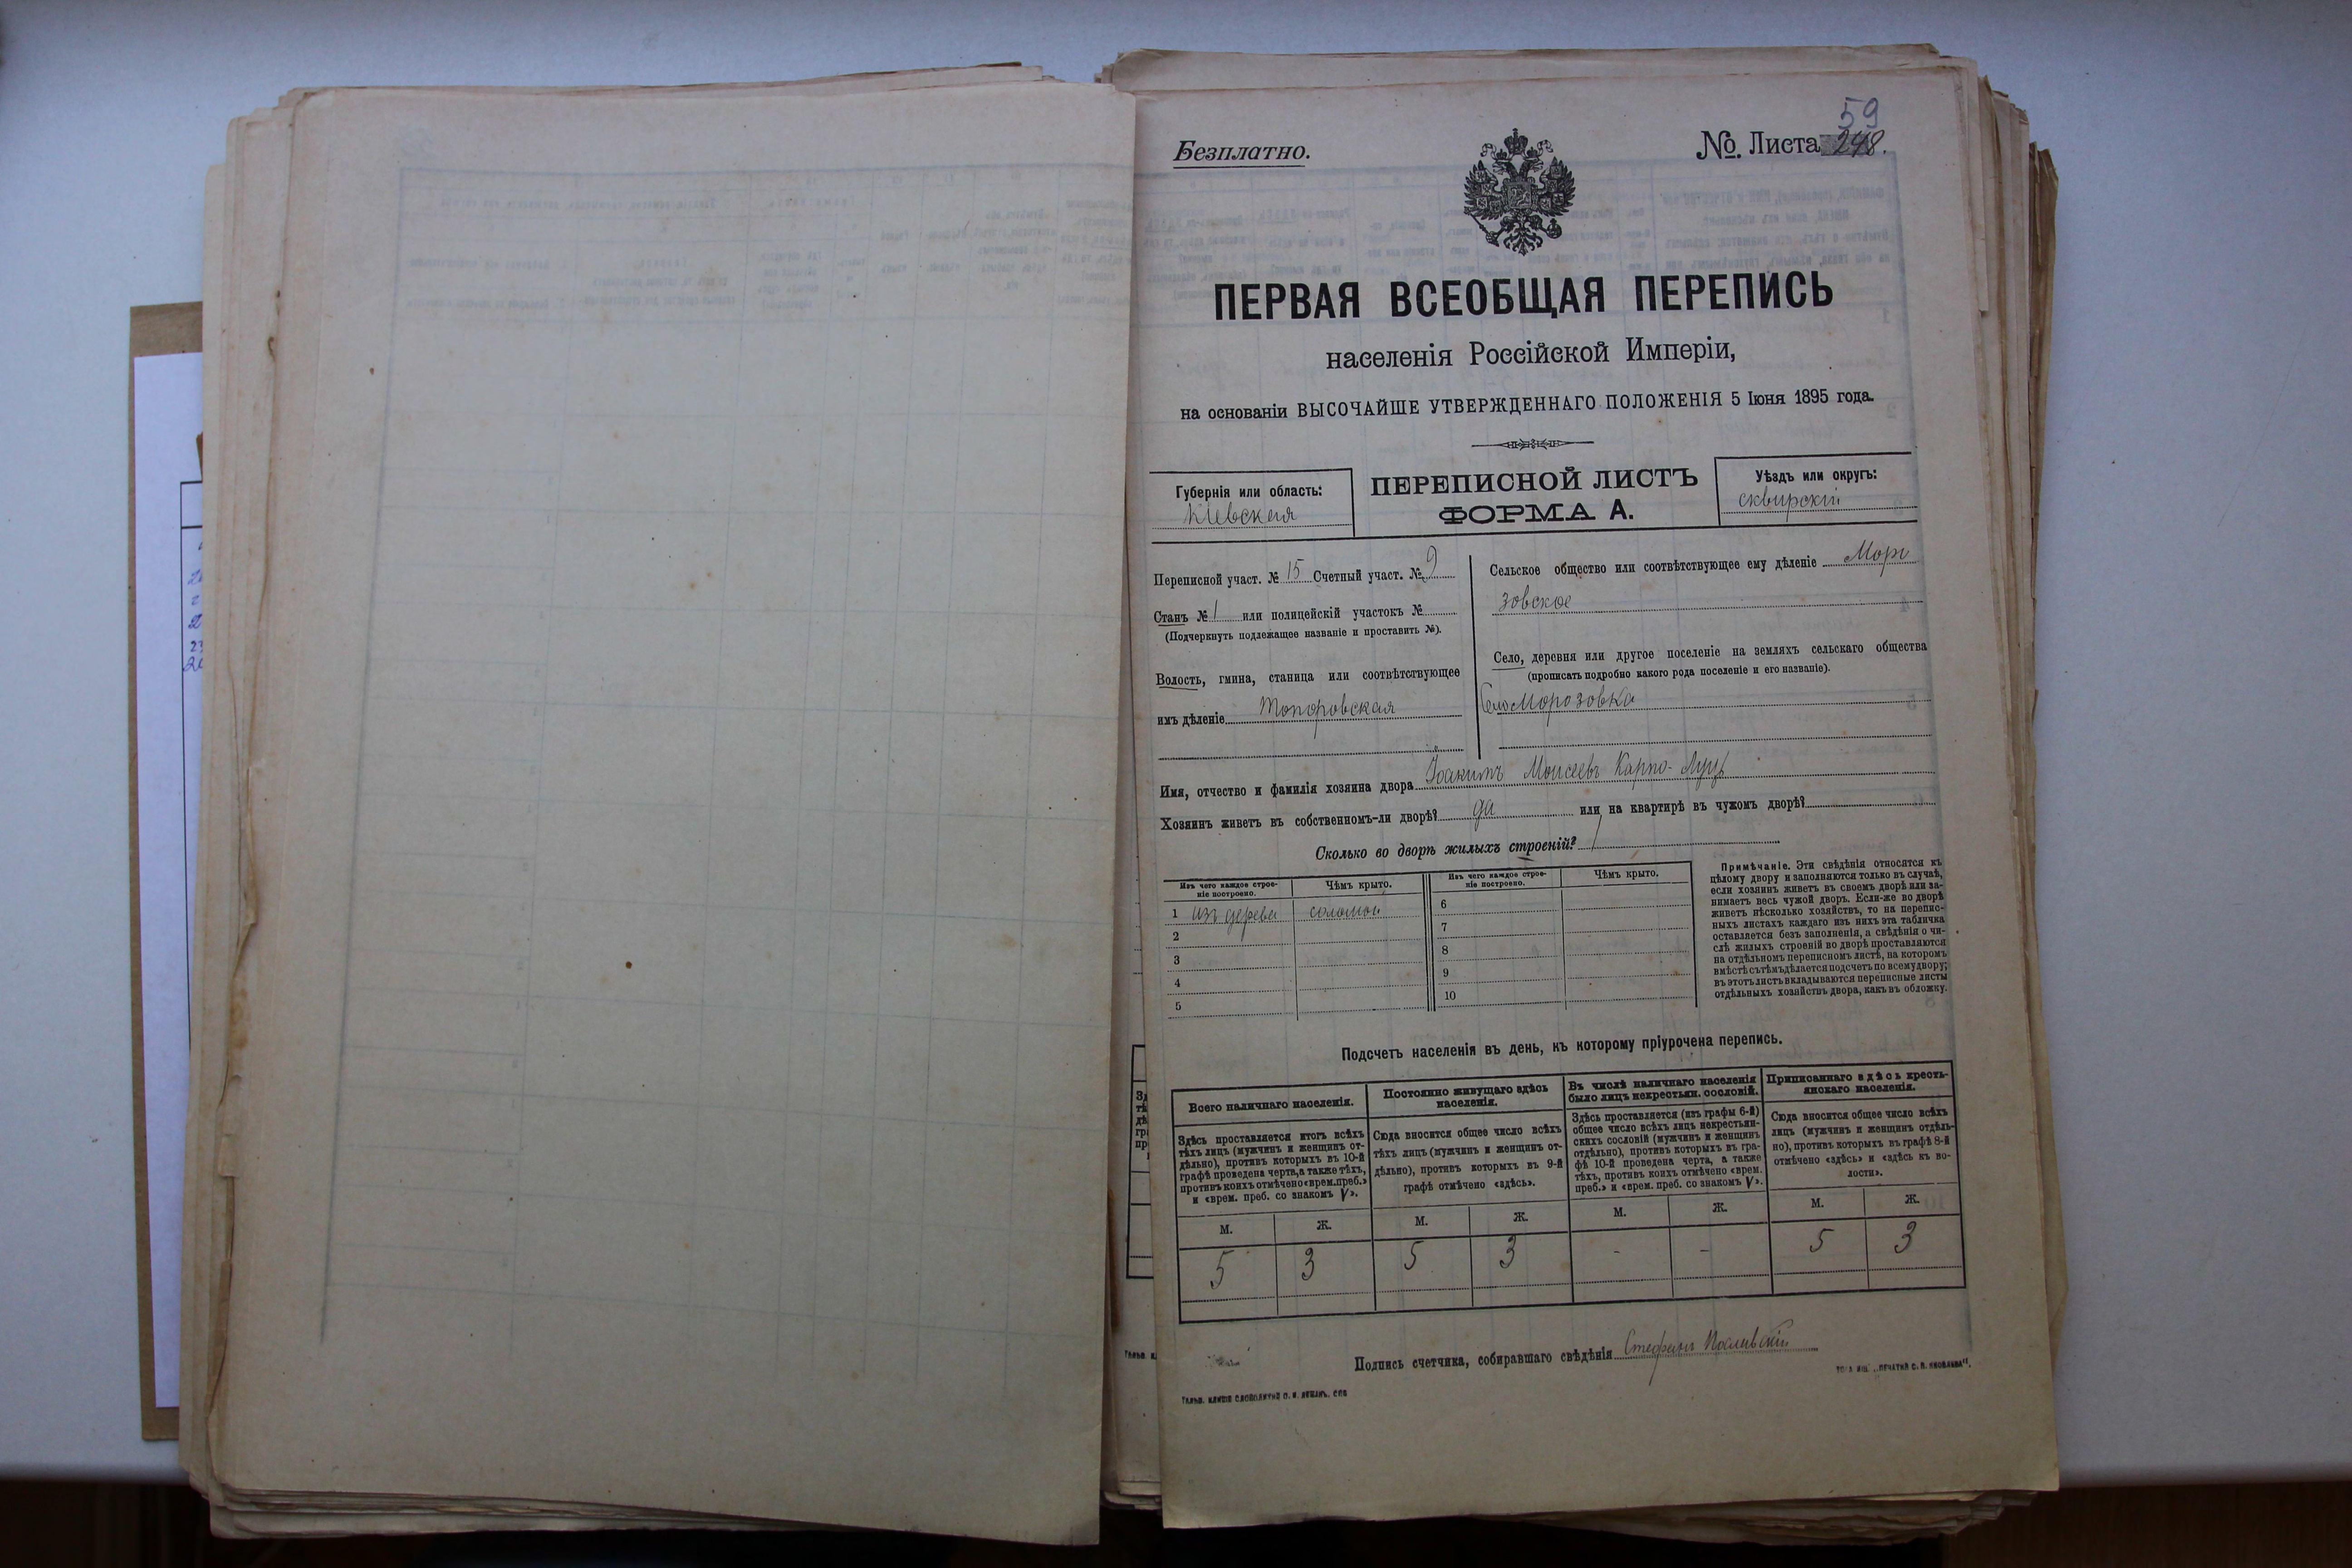 59
Безплатно.
№. Листа 248.
ПЕРВАЯ ВСЕОБЩАЯ ПЕРЕПИСЬ
населенія Россійской Имперіи,
на основаніи ВЫСОЧАЙШЕ УТВЕРЖДЕННАГО ПОЛОЖЕНІЯ 5 Іюня 1895 года.
Губернія или область:
Кіевская
ПЕРЕПИСНОЙ ЛИСТЪ
ФОРМА А.
Уѣздъ или округъ:
сквирскій
Переписной участ. № 15 Счетный участ. № 9
Станъ № 1 или полицейскій участокъ №
(Подчеркнуть подлежащее названіе и проставить №).
Волость, гмина, станица или соотвѣтствующее
имъ дѣленіе Топоровская
Сельское общество или соотвѣтствующее ему дѣленіе Моро
зовское
Село, деревня или другое поселеніе на земляхъ сельскаго общества
(прописать подробно какого рода поселеніе и его названіе).
Село Морозовка
Имя, отчество и фамилія хозяина двора Іоакимъ Моисеевъ Карпо-Луцъ
Хозяинъ живетъ въ собственномъ-ли дворѣ? да или на квартирѣ въ чужомъ дворѣ?
Сколько во дворѣ жилыхъ строеній? 1
Изъ чего каждое строе-
ніе построено.
Чѣмъ крыто.
Изъ чего каждое строе-
ніе построено.
Чѣмъ крыто.
1 изъ дерева соломой
2
3
4
5
6
7
8
9
10
Примѣчаніе. Эти свѣдѣнія относятся къ
цѣлому двору и заполняются только въ случаѣ,
если хозяинъ живетъ въ своемъ дворѣ или за-
нимаетъ весь чужой дворъ. Если-же во дворѣ
живетъ нѣсколько хозяйствъ, то на перепис-
ныхъ листахъ каждаго изъ нихъ эта табличка
оставляется безъ заполненія, а свѣдѣнія о чи-
слѣ жилыхъ строеній во дворѣ проставляются
на отдѣльномъ переписномъ листѣ, на которомъ
вмѣстѣ съ тѣмъ дѣлается подсчетъ по всему двору;
въ этотъ листъ вкладываются переписные листы
отдѣльныхъ хозяйствъ двора, какъ въ обложку.
Подсчетъ населенія въ день, къ которому пріурочена перепись.
Всего наличнаго населенія.
Здѣсь проставляется итогъ всѣхъ
тѣхъ лицъ (мужчинъ и женщинъ от-
дѣльно), противъ которыхъ въ 10-й
графѣ проведена черта, а также тѣхъ,
противъ коихъ отмѣчено «врем. преб.»
и «врем. преб. со знакомъ V».
Постоянно живущаго здѣсь
населенія.
Сюда вносится общее число всѣхъ
тѣхъ лицъ (мужчинъ и женщинъ от-
дѣльно), противъ которыхъ въ 9-й
графѣ отмѣчено «здѣсь».
Въ числѣ наличнаго населенія
было лицъ некрестьян. сословій.
Здѣсь проставляется (изъ графы 6-й)
общее число всѣхъ лицъ некрестьян-
скихъ сословій (мужчинъ и женщинъ
отдѣльно), противъ которыхъ въ гра-
фѣ 10-й проведена черта, а также
тѣхъ, противъ коихъ отмѣчено «врем.
преб.» и «врем. преб. со знакомъ V».
Приписаннаго здѣсь кресть-
янскаго населенія.
Сюда вносится общее число всѣхъ
лицъ (мужчинъ и женщинъ отдѣль-
но), противъ которыхъ въ графѣ 8-й
отмѣчено «здѣсь» и «здѣсь къ во-
лости».
М. Ж. М. Ж. М. Ж. М. Ж.
5 3 5 3 - - 5 3
Подпись счетчика, собиравшаго свѣдѣнія Стефанъ